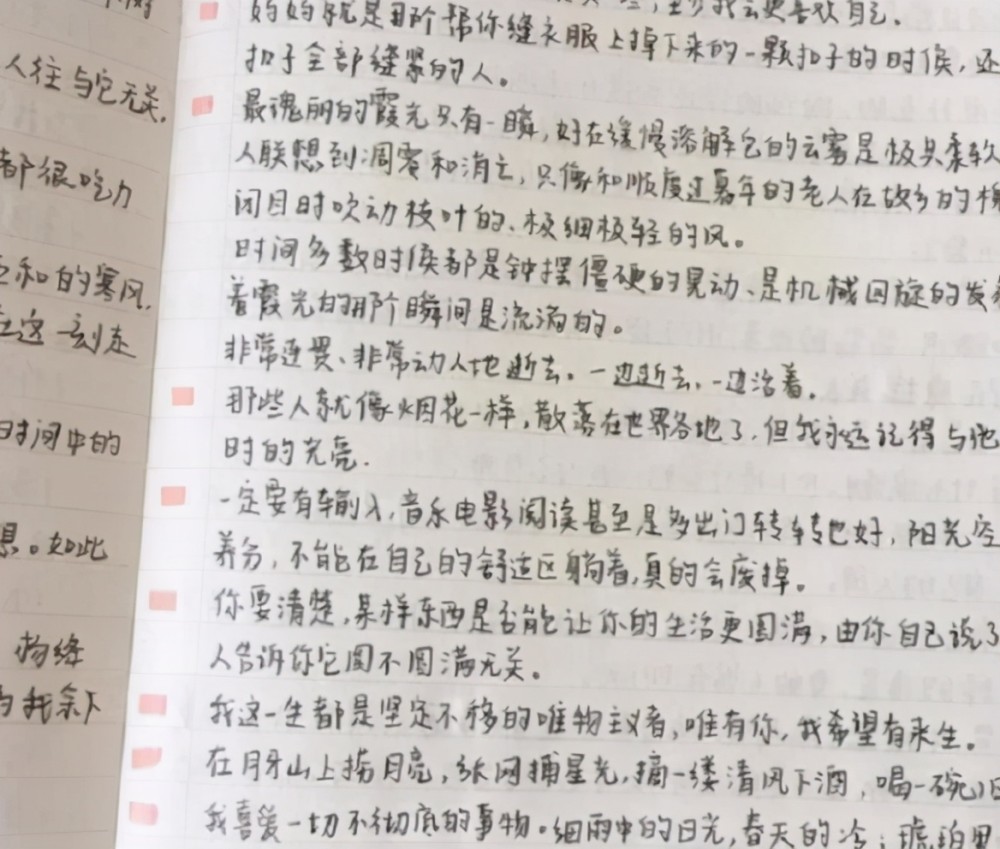 人往与它无关.
都很吃力
和的寒风.
在这一刻走
时间中的
想。如此
构缝
我余下
会更喜欢自己.
妈妈就是那个帮你缝衣服上掉下来的一颗扣子的时候,还
扣子全部缝紧的人。
最瑰丽的霞光只有一瞬,好在缓慢溶解它的云雾是极其柔软
人联想到凋零和消亡,只像和顺度过暮年的老人在故乡的
闭目时吹动枝叶的、极细极轻的风。
时间多数时候都是钟摆僵硬的晃动、是机械回旋的发
着霞光的那个瞬间是流淌的。
非常连贯、非常动人地逝去。一边逝去,一边活着.
那些人就像烟花一样,散落在世界各地了,但我永远记得与他
时的光亮.
一定要有输入,音乐电影阅读甚至是多出门转转也好,阳光空
养分,不能在自己的舒适区躺着,真的会废掉。
你要清楚,某样东西是否能让你的生活更圆满,由你自己说了
人告诉你它圆不圆满无关。
我这一生都是坚定不移的唯物主义者,唯有你,我希望有来生。
在月牙山上捞月亮,张网捕星光,摘一缕清风下酒,喝一碗
我喜爱一切不彻底的事物。细雨中的日光,春天的冷;琥珀里